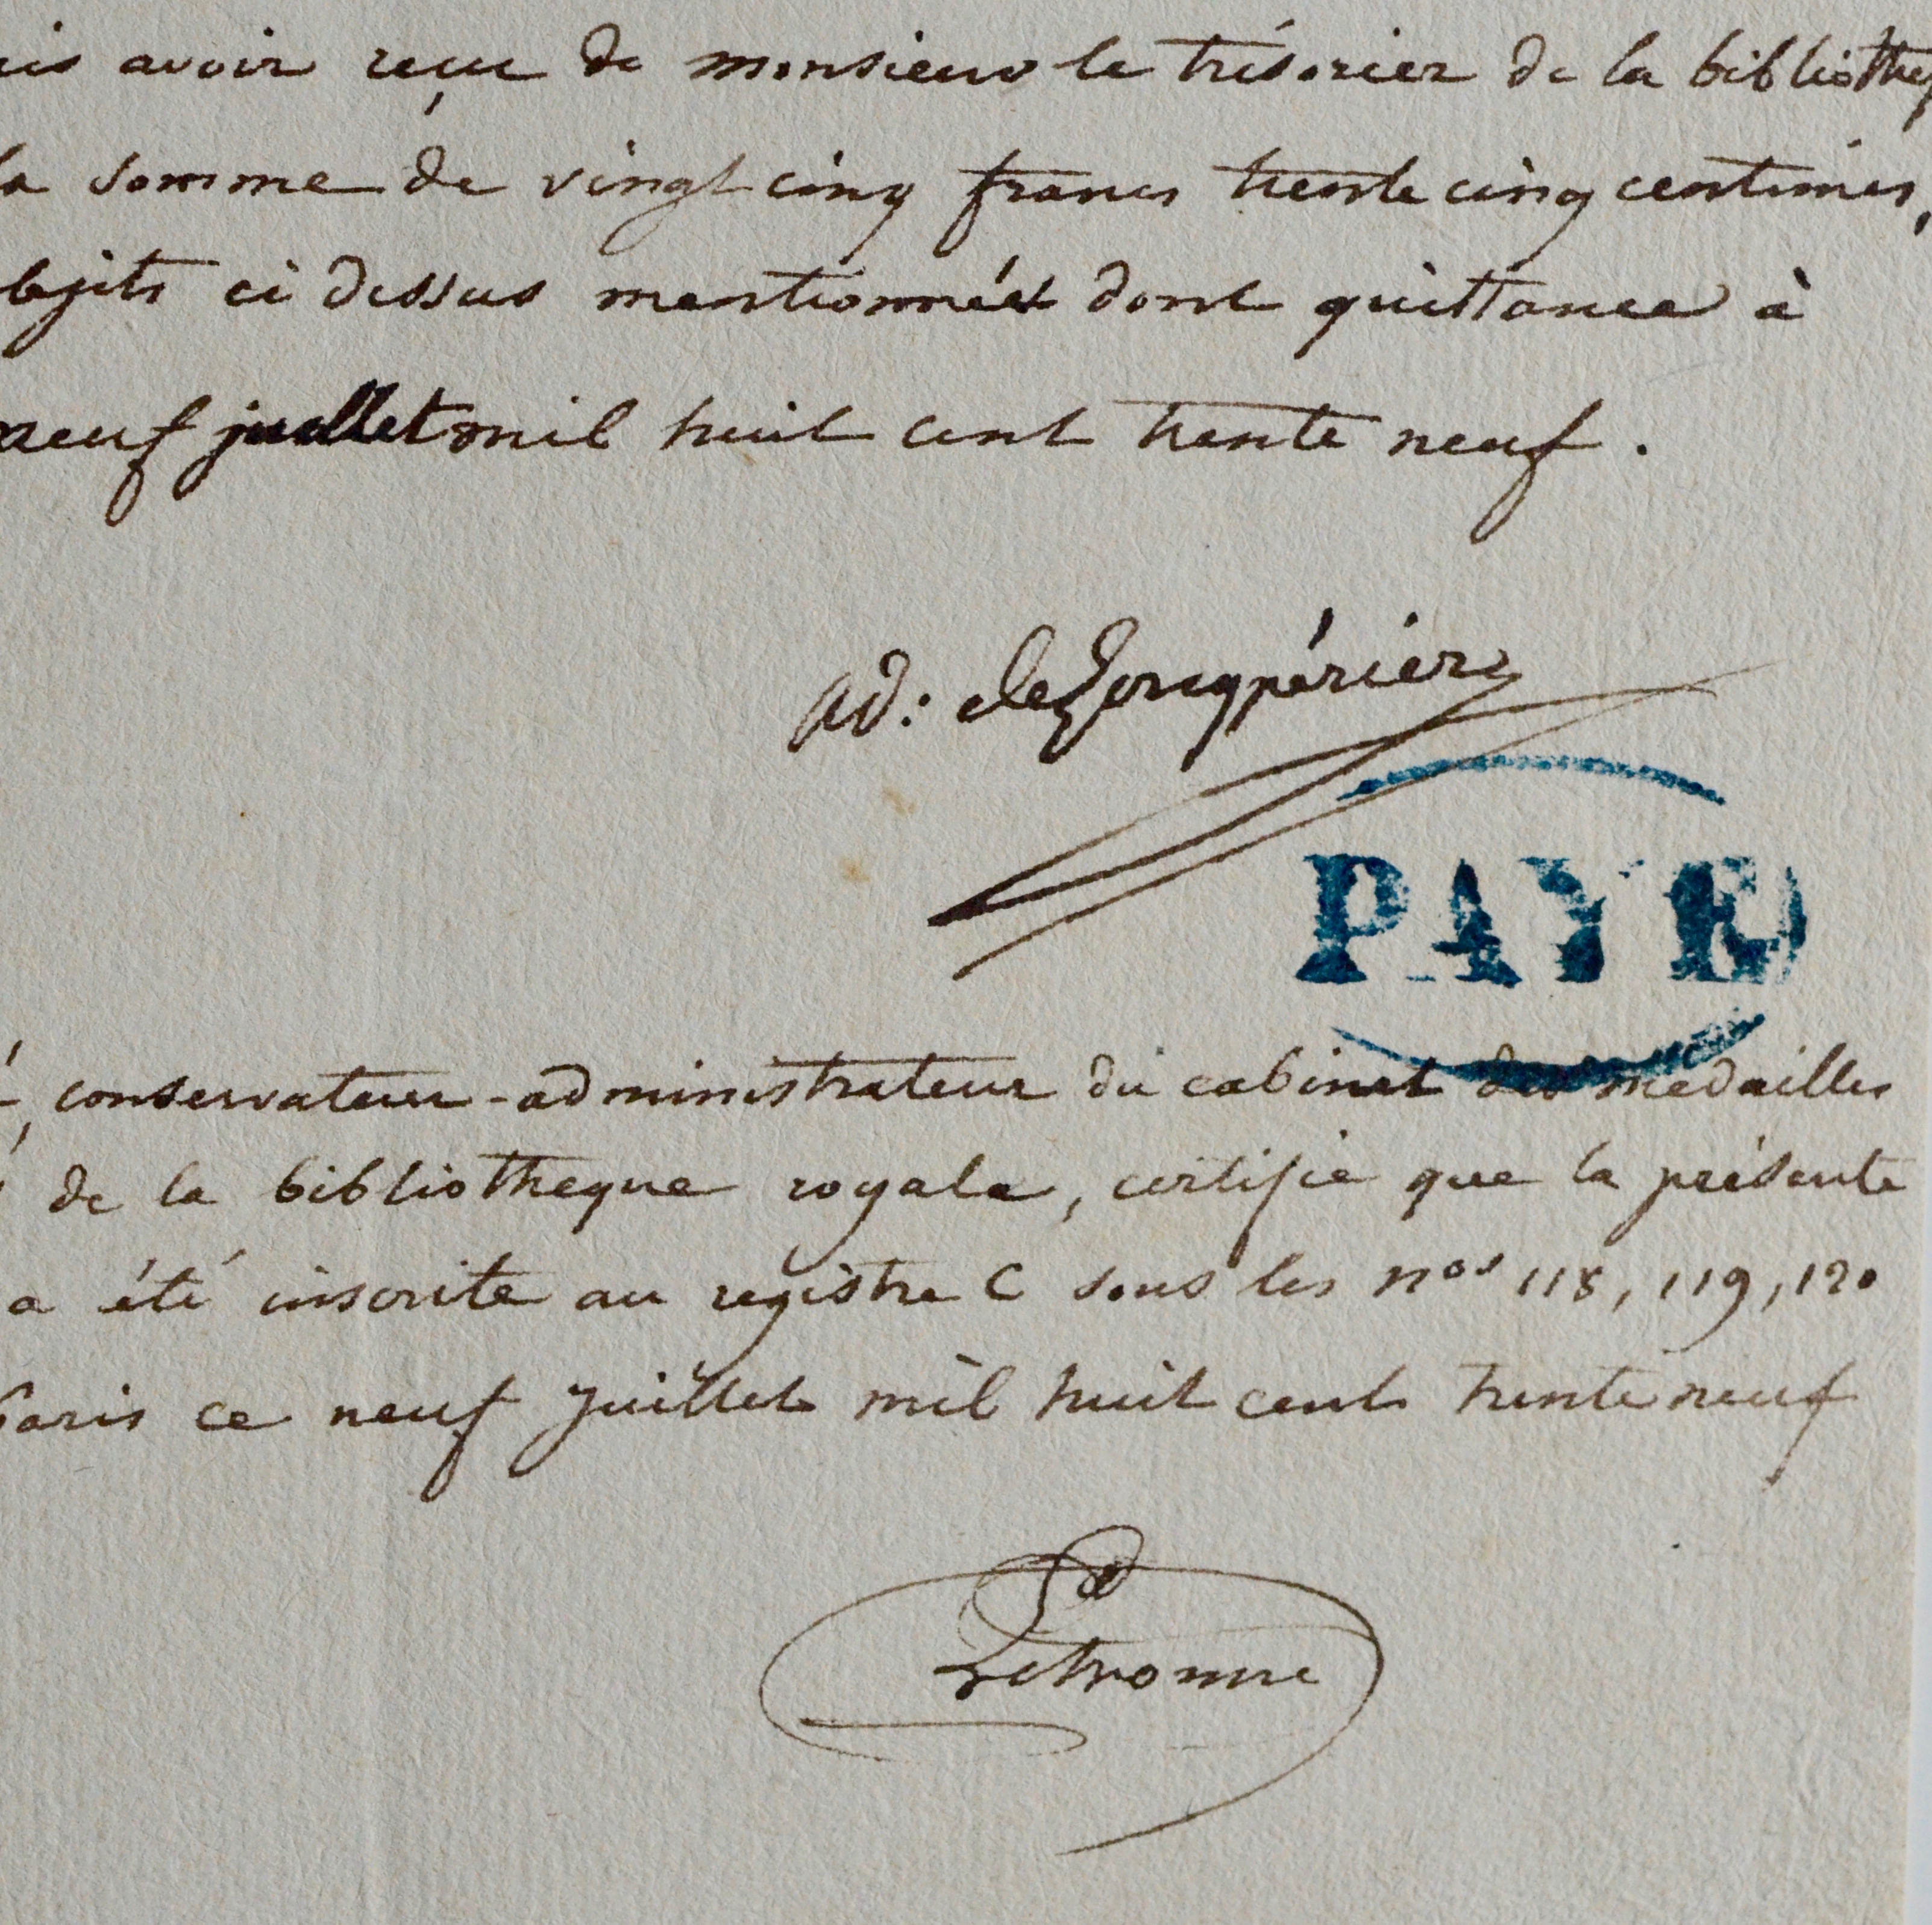 avoir reçu de monsieur le trésorier de la biblioth
la somme de vingt cinq francs trente cinq centimes,
objets ci dessus mentionnés dont quittance à
neuf juillet mil huit cent trente neuf.
ad: de Longpérier
PAYE
conservateur-administrateur du cabinet des medailles
de la bibliotheque royale, certifie que la présente
a été inscrite au registre C sous les nos 118, 119, 120
Paris ce neuf juillet mil huit cent trente neuf
Letronne